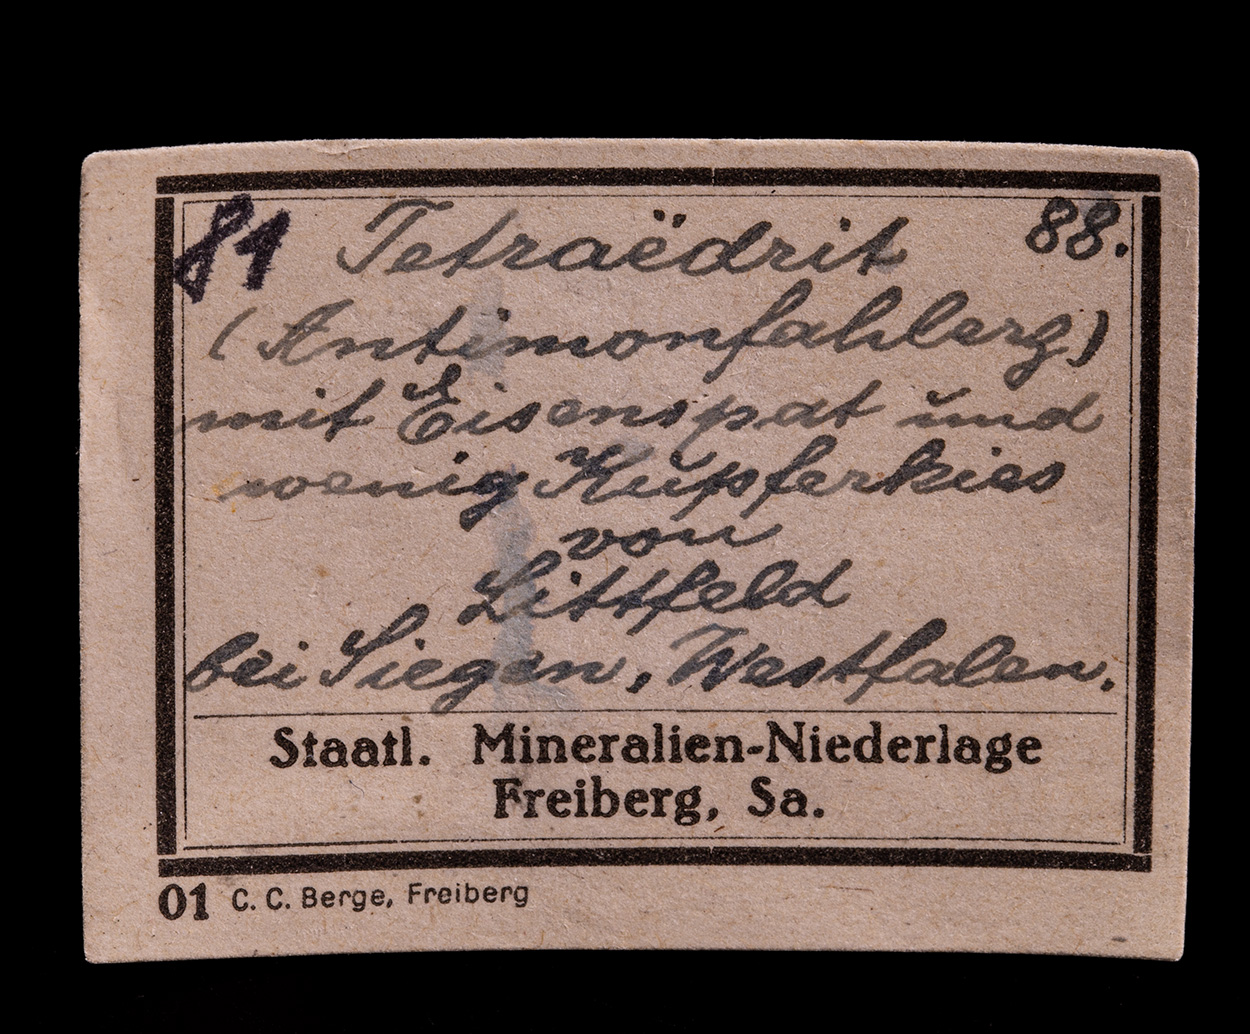 81 Tetraëdrit 88.
(Antimonfahlerz)
mit Eisenspat und
wenig Kupferkies
von
Littfeld
bei Siegen, Westfalen.
Staatl. Mineralien-Niederlage
Freiberg, Sa.
01 C. C. Berge, Freiberg